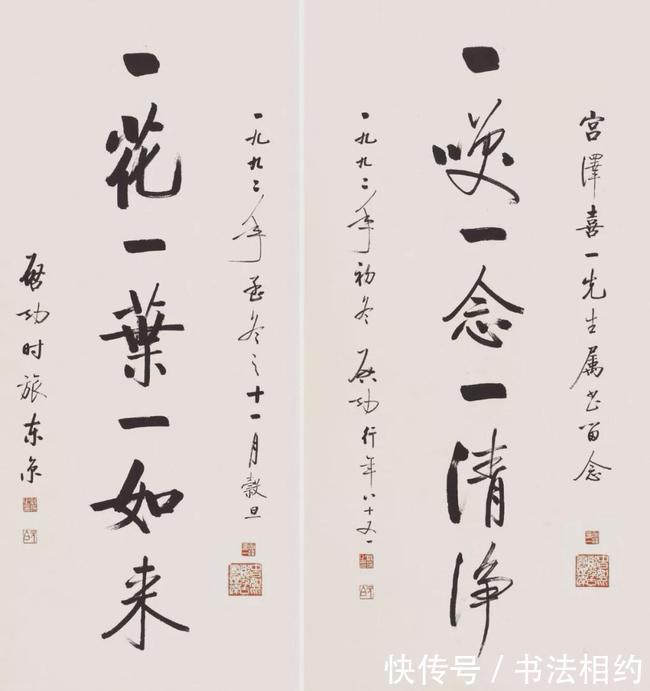 宫澤喜一先生属书留念
一咲一念一清浄
一九九二年初冬 启功行年八十又一
一九九二年孟冬之十一月穀旦
一花一葉一如来
启功时旅东京
快传号 / 书法相约